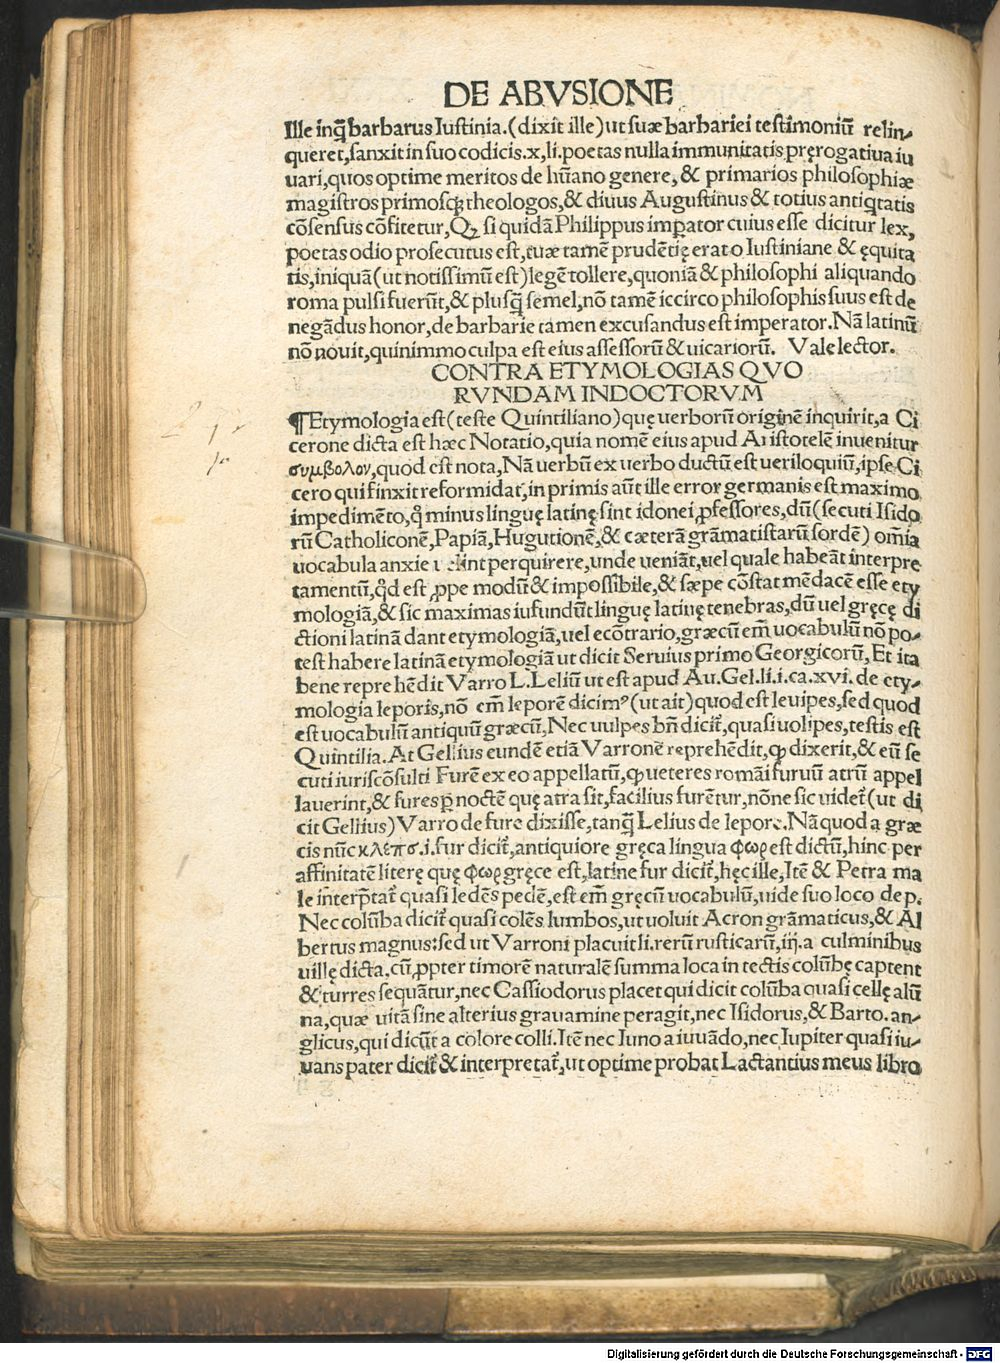 DE ABVSIONE
Ille inq̃ barbarus Iustinia.(dixit ille)ut suæ barbariei testimoniũ relin-
queret,sanxit in suo codicis.x,li.poetas nulla immunitatis pręrogatiua iu
uari,quos optime meritos de hũano genere,& primarios philosophiæ
magistros primosq; theologos,& diuus Augustinus & totius antiqtatis
cõsensus cõfitetur,Qꝫ si quidã Philippus impator cuius esse dicitur lex,
poetas odio prosecutus est,tuæ tamẽ prudẽtię erat o Iustiniane & ęquita
tis,iniquã(ut notissimũ est)legẽ tollere,quoniã & philosophi aliquando
roma pulsi fuerũt,& plusq̃ semel,nõ tamẽ iccirco philosophis suus est de
negãdus honor,de barbarie tamen excusandus est imperator.Nã latinũ
nõ nouit,quinimmo culpa est eius assessorũ & uicariorũ. Vale lector.
CONTRA ETYMOLOGIAS QVO
RVNDAM INDOCTORVM
¶Etymologia est(teste Quintiliano)quę uerborũ originẽ inquirit,a Ci
cerone dicta est hæc Notatio,quia nomẽ eius apud Aristotelẽ inuenitur
συμβολον,quod est nota,Nã uerbũ ex uerbo ductũ est ueriloquiũ,ipse Ci
cero qui finxit reformidat,in primis aũt ille error germanis est maximo
impedimẽto,q̊ minus linguę latinę sint idonei ꝓfessores,dũ(secuti Isido
rũ Catholiconẽ,Papiã,Hugutionẽ,& cæterã grãmatistarũ sordẽ) omia
uocabula anxie uelint perquirere,unde ueniãt,uel quale habeãt interpre
tamentũ,qd est ꝓpe modũ & impossibile,& sæpe cõstat mẽdacẽ esse ety
mologiã,& sic maximas iufundũt linguę latinę tenebras,dũ uel gręcę di
ctioni latinã dant etymologiã,uel ecõtrario,græcũ em̃ uocabulũ nõ po-
test habere latinã etymologiã ut dicit Seruius primo Georgicorũ,Et ita
bene reprehẽdit Varro L.Leliũ ut est apud Au.Gel.li.i.ca.xvi.de ety-
mologia leporis,nõ em̃ leporẽ dicimꝰ(ut ait)quod est leuipes,sed quod
est uocabulũ antiquũ græcũ,Nec uulpes bñ dicit̃,quasi uolipes,testis est
Quintilia.At Gellius eundẽ etiã Varronẽ reprehẽdit,ꝙ dixerit,& eũ se
cuti iuriscõsulti Furẽ ex eo appellatũ,ꝙ ueteres romãi furuũ atrũ appel
lauerint,& fures p noctẽ quę atra sit,facilius furẽtur,nõne sic uidet̃(ut di
cit Gellius)Varro de fure dixisse,tanq̃ Lelius de lepore.Nã quod a græ
cis nũc κλέπσ.i.fur dicit̃,antiquiore gręca lingua φωρ est dictũ,hinc per
affinitatẽ literę quę φωρ gręce est,latine fur dicit̃,hęc ille,Itẽ & Petra ma
le interptat̃ quasi ledẽs pedẽ,est em̃ gręcũ uocabulũ,uide suo loco de p.
Nec colũba dicit̃ quasi colẽs lumbos,ut uoluit Acron grãmaticus,& Al
bertus magnus:sed ut Varroni placuit li.rerũ rusticarũ,iij.a culminibus
uillę dicta,cũ ꝓpter timorẽ naturalẽ summa loca in tectis colũbę captent
& turres sequãtur,nec Cassiodorus placet qui dicit colũba quasi cellę alũ
na,quæ uitã sine alterius grauamine peragit,nec Isidorus,& Barto.an-
glicus,qui dicũt a colore colli.Itẽ nec Iuno a iuuãdo,nec Iupiter quasi iu-
uans pater dicit̃ & interpretat̃,ut optime probat Lactantius meus libro
Digitalisierung gefördert durch die Deutsche Forschungsgemeinschaft - DFG